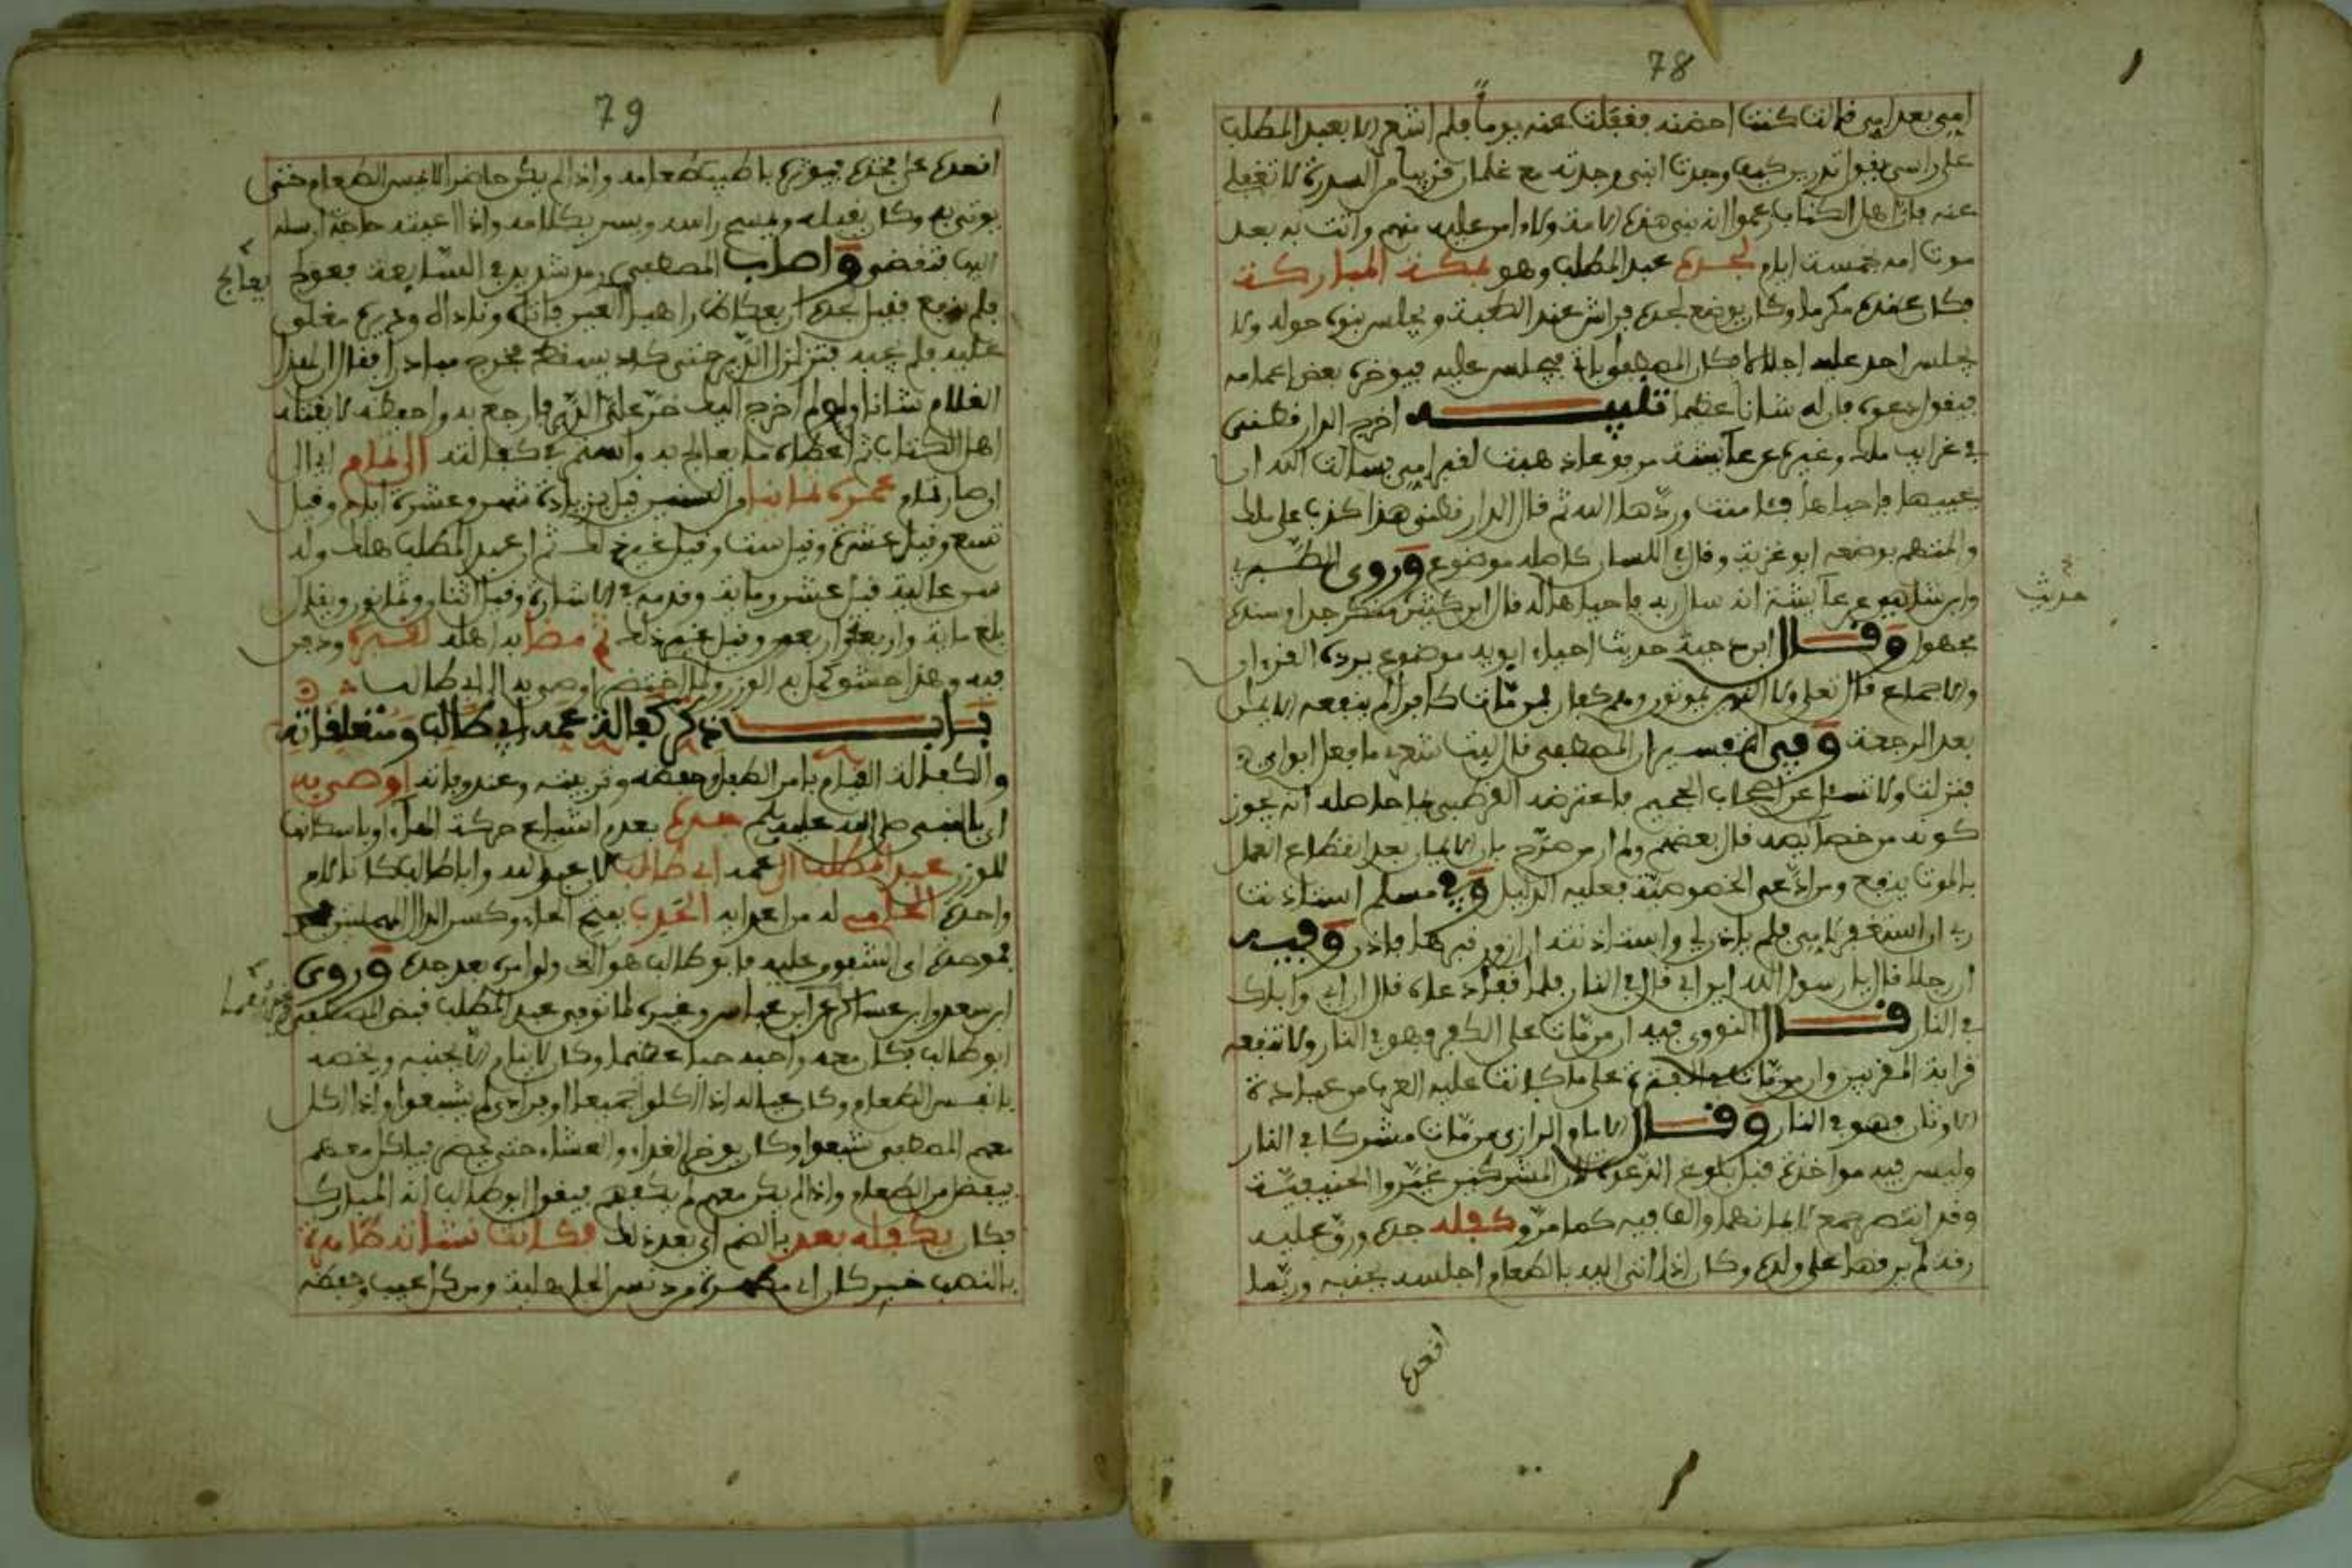 78
امي بعد امي قالت كنت احضنه فغفلت عنه يوما فلم اشعر الا بعبد المطلب
على راسي يقول اتدرين كيف وجدت ابني وجدته مع غلمان قريبا من السدرة لا تغفلي
عنه فان اهل الكتاب يزعمون انه نبي هذه الامة ولا امن عليه منهم واتت به بعد
موت امه بخمسة ايام لجده عبد المطلب وهو بمكة المباركة
فكان عنده مكرما وكان يوضع لجده فراش عند الكعبة ويجلس بنوه حوله ولا
يجلس احد عليه اجلالا فكان المصطفى ياتي فيجلس عليه فيوخره بعض اعمامه
فيقول دعوه فان له شانا عظيما تنبيه اخرج الدارقطني
في غرايب ملك وغيره عن عايشة مرفوعا ذهبت لقبر امي فسالت الله ان
يحييها فاحياها فئامنت وردها الله ثم قال الدارقطني هذا كذب على ملك
والمتهم بوضعه ابو غزية وقال في اللسان كاصله موضوع وروى الطبري
وابن شاهين عن عايشة انه سال ربه فاحياها له قال ابن كثير منكر جدا وسنده
حديث
مجهول وقال ابن دحية حديث احياء ابويه موضوع يرده القرءان
والاجماع قال تعلى ولا الذين يموتون وهم كفار فمن مات كافرا لم ينفعه الايمان
بعد الرجعة وفي التفسير ان المصطفى قال ليت شعري ما فعل ابواي
فنزلت ولا تسئل عن اصحاب الجحيم فاعترضه القرطبي بما حاصله انه يجوز
كونه من خصايصه قال بعضهم ولم ار من صرح بان الايمان بعد انقطاع العمل
بالموت ينفع ومن ادعى الخصوصية فعليه الدليل وفي مسلم استاذنت
ربي ان استغفر لامي فلم ياذن لي واستاذنته ان ازور قبرها فاذن وفيه
ان رجلا قال يا رسول الله اين ابي قال في النار فلما قفا دعاه قال ان ابي واباك
في النار قال النووي فيه ان من مات على الكفر فهو في النار ولا تنفعه
قرابة المقربين وان من مات في الفترة على ما كانت عليه العرب من عبادة
الاوثان فهو في النار وقال الامام الرازي من مات مشركا في النار
وليس فيه مواخذة قبل بلوغ الدعوة لان المشركين غيروا الحنيفية
وقد انتصر جمع لايمانهما والف فيه كما مر وكفله جده ورق عليه
رقة لم يرقها على ولده وكان اذا اتي اليه بالطعام اجلسه بجنبه وربما
اقعده
79
اقعده على فخذه فيوثره باطيب طعامه واذا لم يكن حاضرا لا يمس الطعام حتى
يوتى به وكان يقبله ويمسح راسه ويسر بكلامه واذا اعيته حاجة ارسله
اليها فتقضى واصاب المصطفى رمد شديد في السابعة فعولج
يعالج
فلم ينجع فقيل لجده ان بعكاظ راهبا فاتاه وناداه وديره مغلق
عليه فلم يجبه فتزلزل الدير حتى كاد يسقط فخرج مبادرا فقال ان لهذا
الغلام شانا ولو لم اخرج اليك خر علي الدير فارجع به واحفظه لا يقتله
اهل الكتاب ثم اعطاه ما يعالج به واستمر في كفالته الى تمام اي الى
ان صار تمام عمره ثمانيا من السنين قيل بزيادة شهر وعشرة ايام وقيل
تسع وقيل عشرة وقيل ست وقيل غير ذلك ثم ان عبد المطلب هلك وله
سن عالية قيل عشر وماية وقدمه في الاشارة وقيل اثنان وثمانون ويقال
بلغ ماية واربعا واربعين وقيل غير ذلك ثم مضى به اهله لقبره ودفن
فيه وهذا حشو كمل به الوزن ولما احتضر اوصى به الى ابي طالب
باب ذكر كفالة عمه ابي طالب ومتعلقاته
والكفالة القيام بامر الطفل وحفظه وتربيته وعند وفاته اوصى به
اي بالنبي صلى الله عليه وسلم جده بعدم اشباع حركة الهاء او باسكانها
للوزن عبد المطلب الى عمه ابي طالب لان عبد الله وابا طالب كانا لام
واحدة الحامي له من اعدايه الحدب بفتح الحاء وكسر الدال المهملتين
فموحدة اي الشفوق عليه فابو طالب هو الذي ولي امره بعد جده وروى
ابن سعد وابن عساكر عن ابن عباس وغيره لما توفي عبد المطلب قبض المصطفى
ابو طالب فكان معه واحبه حبا عظيما وكان لا ينام الا بجنبه ويخصه
بانفس الطعام وكان عياله اذا اكلوا جميعا او فرادى لم يشبعوا واذا اكل
معهم المصطفى شبعوا وكان يوخر الغداء والعشاء حتى يحضر فياكل معهم
فيفضل من الطعام واذا لم يكن معهم لم يكفهم فيقول ابو طالب انه لمبارك
فكان يكفله بعد بالضم اي بعد ذلك فكانت نشاته طاهرة
بالنصب خبر كان اي مطهرة من دنس الجاهلية ومن كل عيب وحفظه